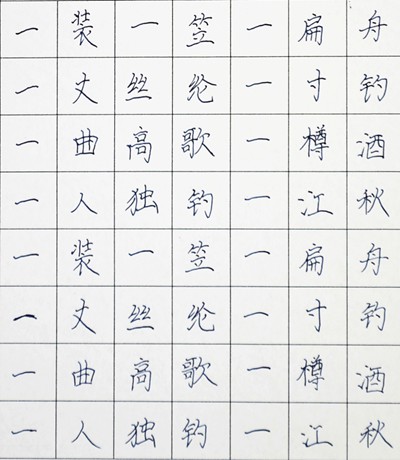 一装一笠一扁舟
一丈丝纶一寸钓
一曲高歌一樽酒
一人独钓一江秋
一装一笠一扁舟
一丈丝纶一寸钓
一曲高歌一樽酒
一人独钓一江秋